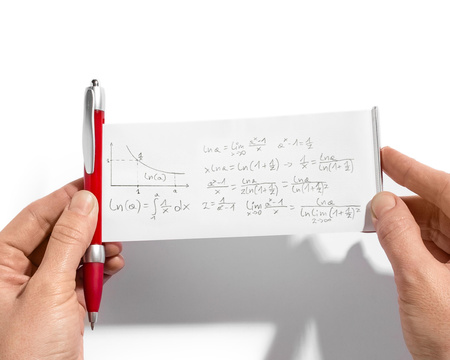 1/x
ln(a)
1 a
ln(a) = ∫₁ᵃ 1/x dx
ln a = lim x→0 (aˣ-1)/x   aˣ-1 = 1/z
x ln a = ln(1+1/z) → 1/x = ln a / ln(1+1/z)
(aˣ-1)/x = ln a / (z ln(1+1/z)) = ln a / ln(1+1/z)ᶻ
z = 1/(aˣ-1)   lim x→0 (aˣ-1)/x = ln a / (ln lim z→∞ (1+1/z)ᶻ)